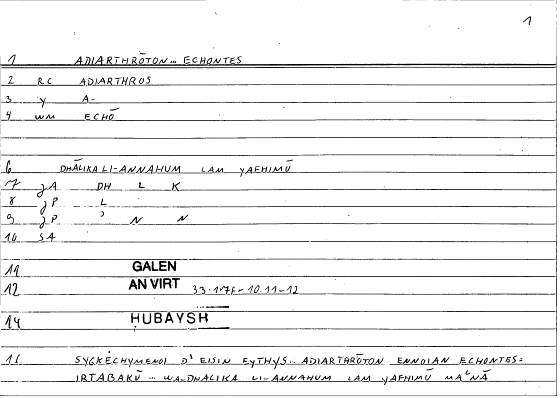 1
1 ADIARTHRŌTON... ECHONTES
2 RC ADIARTHROS
3 Y A-
4 WM ECHŌ
6 DHĀLIKA LI-ANNAHUM LAM YAFHIMŪ
7 JA DH L K
8 JP L
9 JP ʾ N N
10 SA
11 GALEN
12 AN VIRT 33.17F-10.11-12
14 HUBAYSH
16 SYGKECHYMENOI D' EISIN EYTHYS... ADIARTHRŌTON ENNOIAN ECHONTES:
IRTABAKŪ... WA-DHĀLIKA LI-ANNAHUM LAM YAFHIMŪ MAʿNĀ